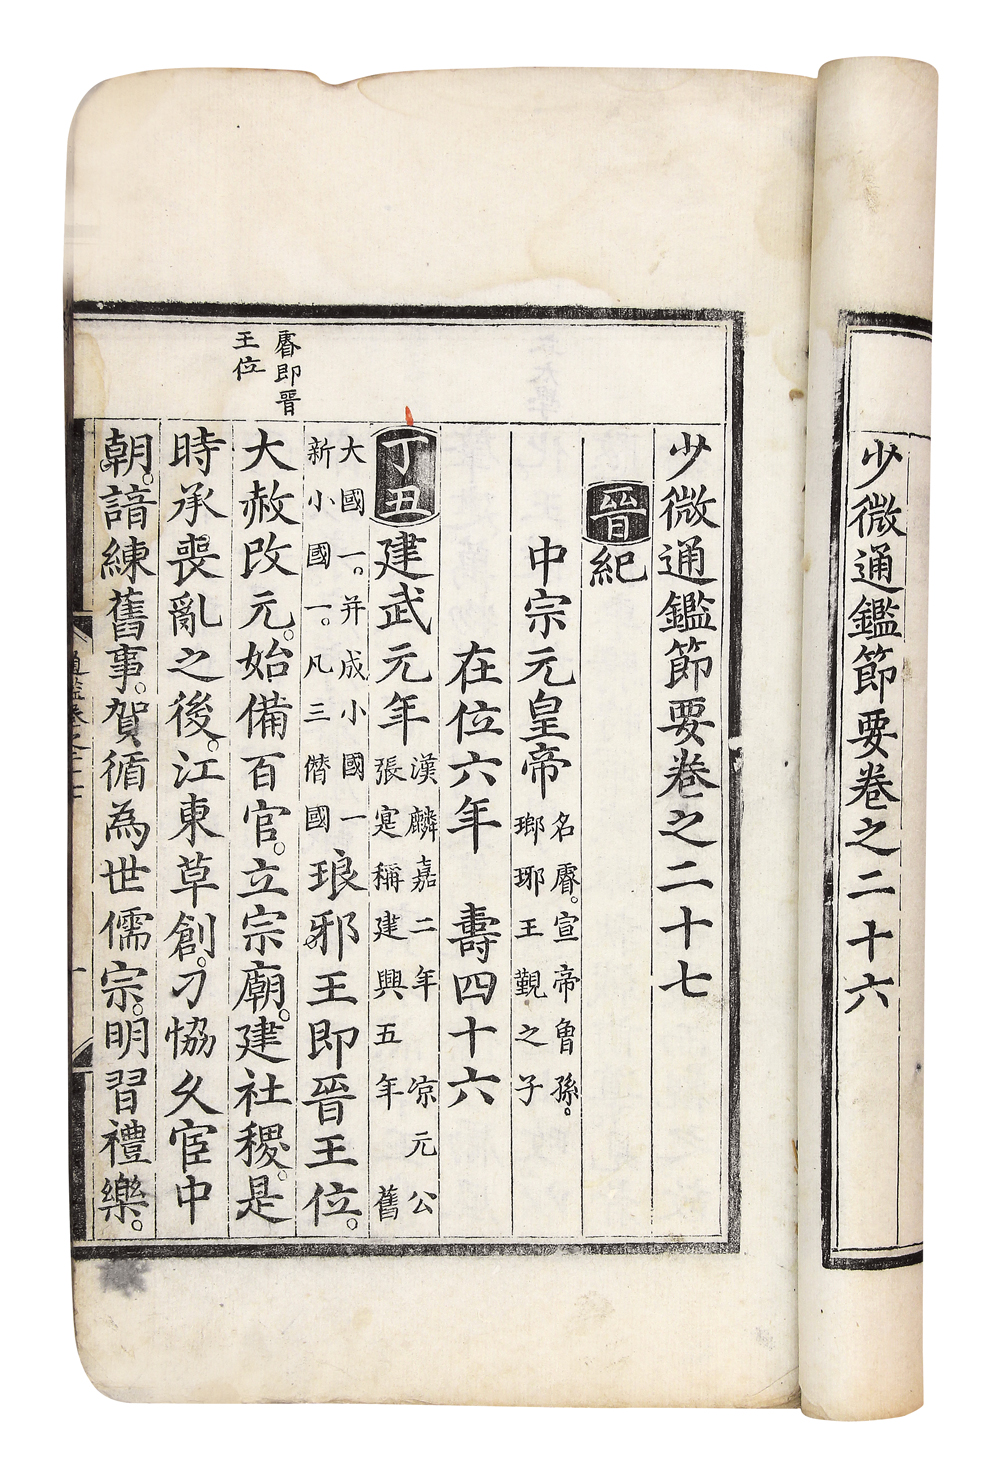 少微通鑑節要卷之二十六
少微通鑑節要卷之二十七
晉紀
中宗元皇帝名睿。宣帝曾孫。瑯琊王覲之子
在位六年 壽四十六
丁丑建武元年漢麟嘉二年凉元公張寔稱建興五年舊
大國一。并成小國一新小國一。凡三僭國琅邪王即晉王位。
睿即晉
王位
大赦改元。始備百官。立宗廟。建社稷。是
時承喪亂之後。江東草創。刁恊久宦中
朝。諳練舊事。賀循為世儒宗。明習禮樂。